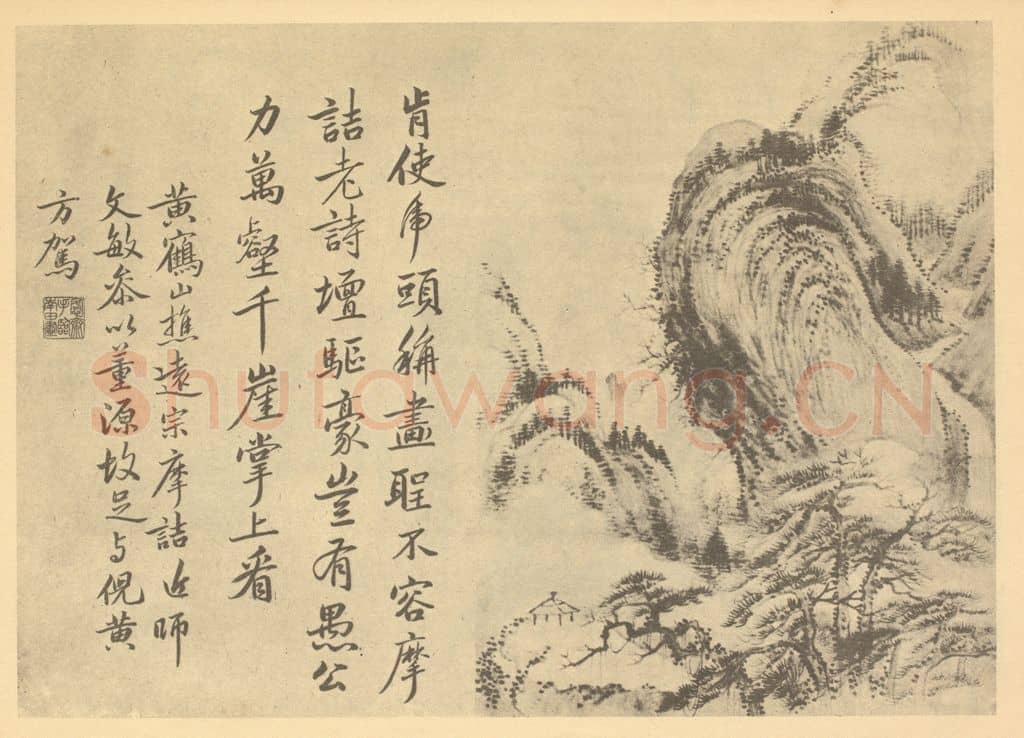 肯使虎頭稱畫聖不容摩
詰老詩壇驅豪豈有愚公
力萬壑千崖掌上看
黃鶴山樵遠宗摩詰近師
文敏叅以董源故足与倪黄
方駕
Shufawang.CN